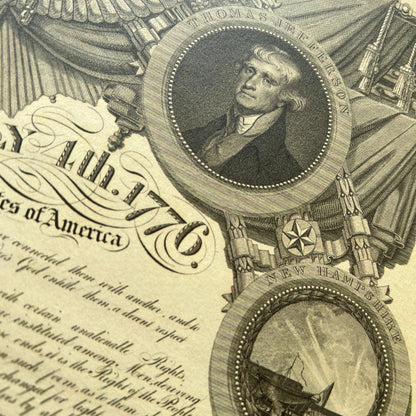 THOMAS JEFFERSON
LY 4th. 1776.
tes of America
connected them with another, and to
God entitle them a decent respect
with certain unalienable Rights
are instituted among Men, deriving
ends, it is the Right of the People
on such form, as to them
NEW HAMPSHIRE